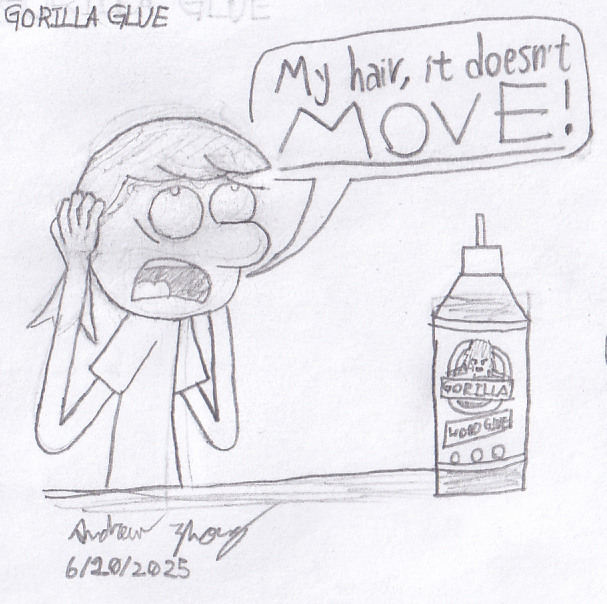 GORILLA GLUE
My hair, it doesn't
MOVE!
GORILLA
WOOD GLUE
Andrew Zhong
6/20/2025